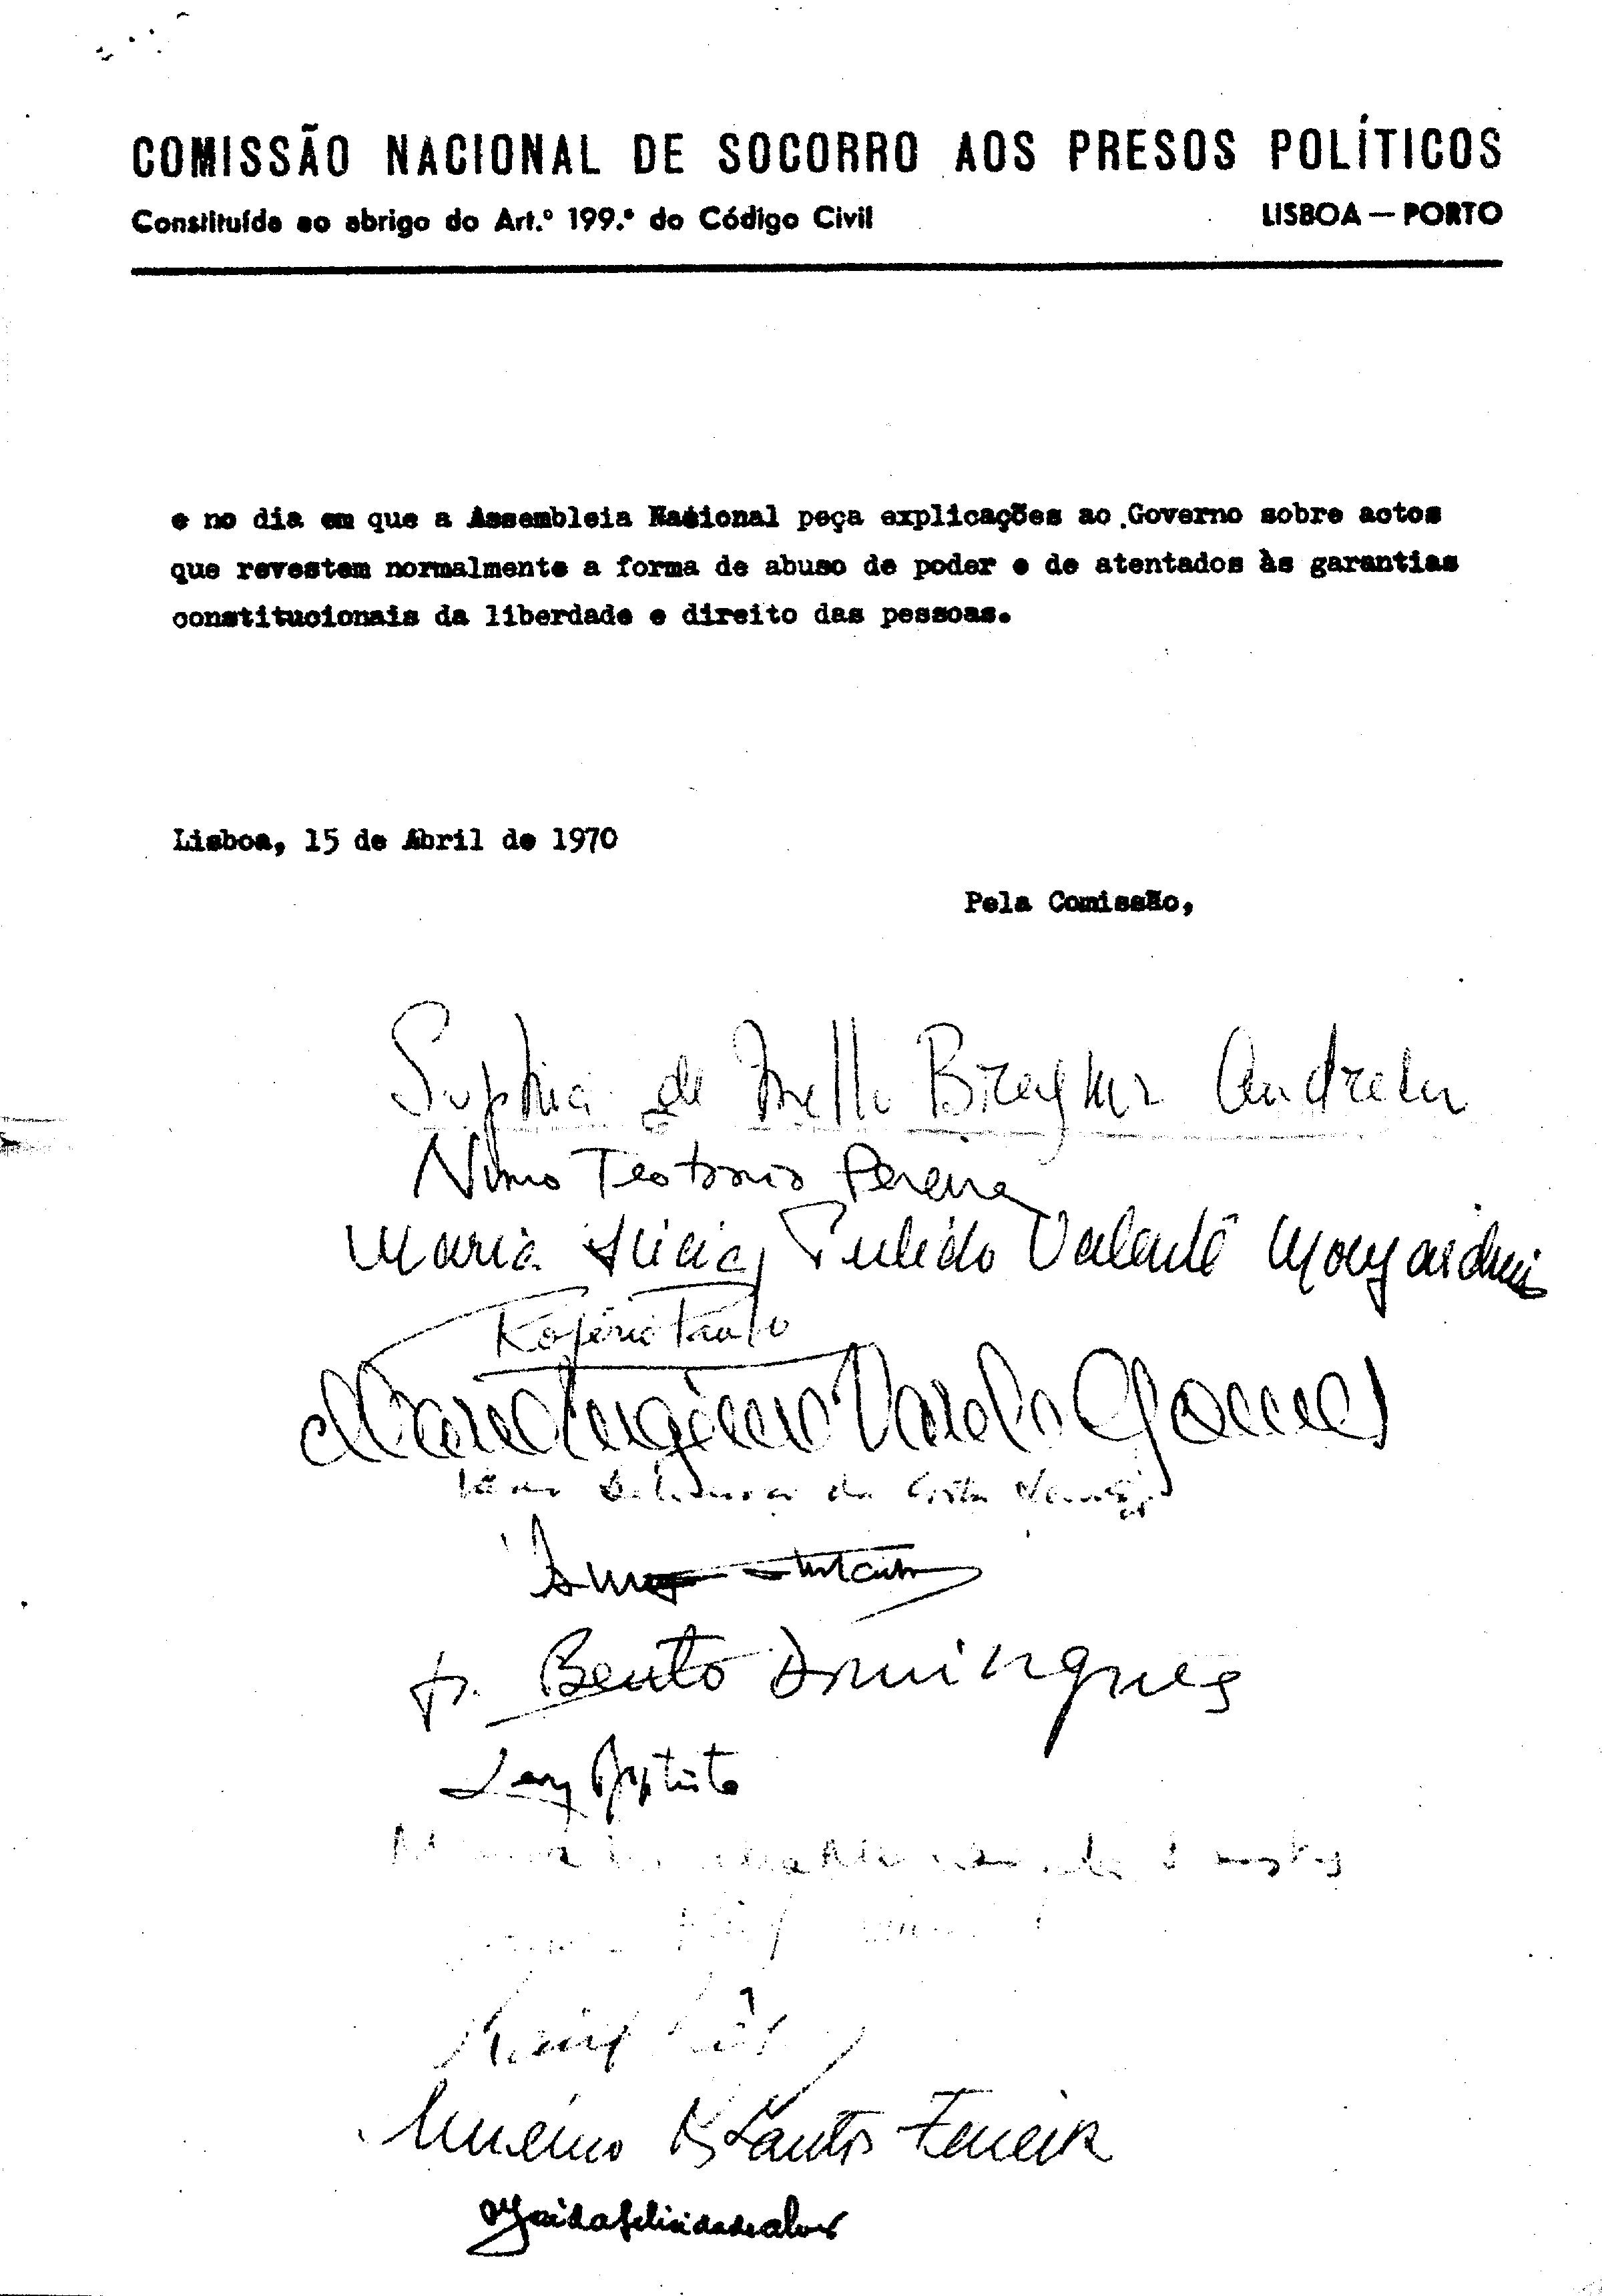 COMISSÃO NACIONAL DE SOCORRO AOS PRESOS POLÍTICOS
Constituída ao abrigo do Art.º 199.º do Código Civil LISBOA — PORTO
e no dia em que a Assembleia Nacional peça explicações ao Governo sobre actos
que revestem normalmente a forma de abuso de poder e de atentados às garantias
constitucionais da liberdade e direito das pessoas.
Lisboa, 15 de Abril de 1970
Pela Comissão,
Sophia de Mello Breyner Andresen
Nuno Teotonio Pereira
Maria Lucia Pulido Valente Monjardino
Rogério Paulo
Maria Eugénia Varela Gomes
da Costa
fr. Bento Domingues
Levy Baptista
Santos
Santos Ferreira
felicidade alves